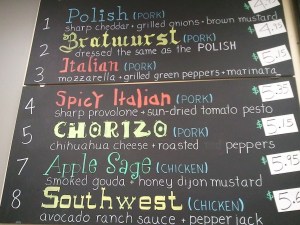 1 Polish (PORK)
sharp cheddar + grilled onions + brown mustard
2 Bratwurst (PORK)
dressed the same as the POLISH
3 Italian (PORK)
mozzarella + grilled green peppers + marinara
4 Spicy Italian (PORK) 5.35
sharp provolone + sun-dried tomato pesto
5 CHORIZO (PORK) $5.15
chihuahua cheese + roasted peppers
7 Apple Sage (CHICKEN) $5.95
smoked gouda + honey dijon mustard
8 Southwest (CHICKEN)
avocado ranch sauce + pepper jack